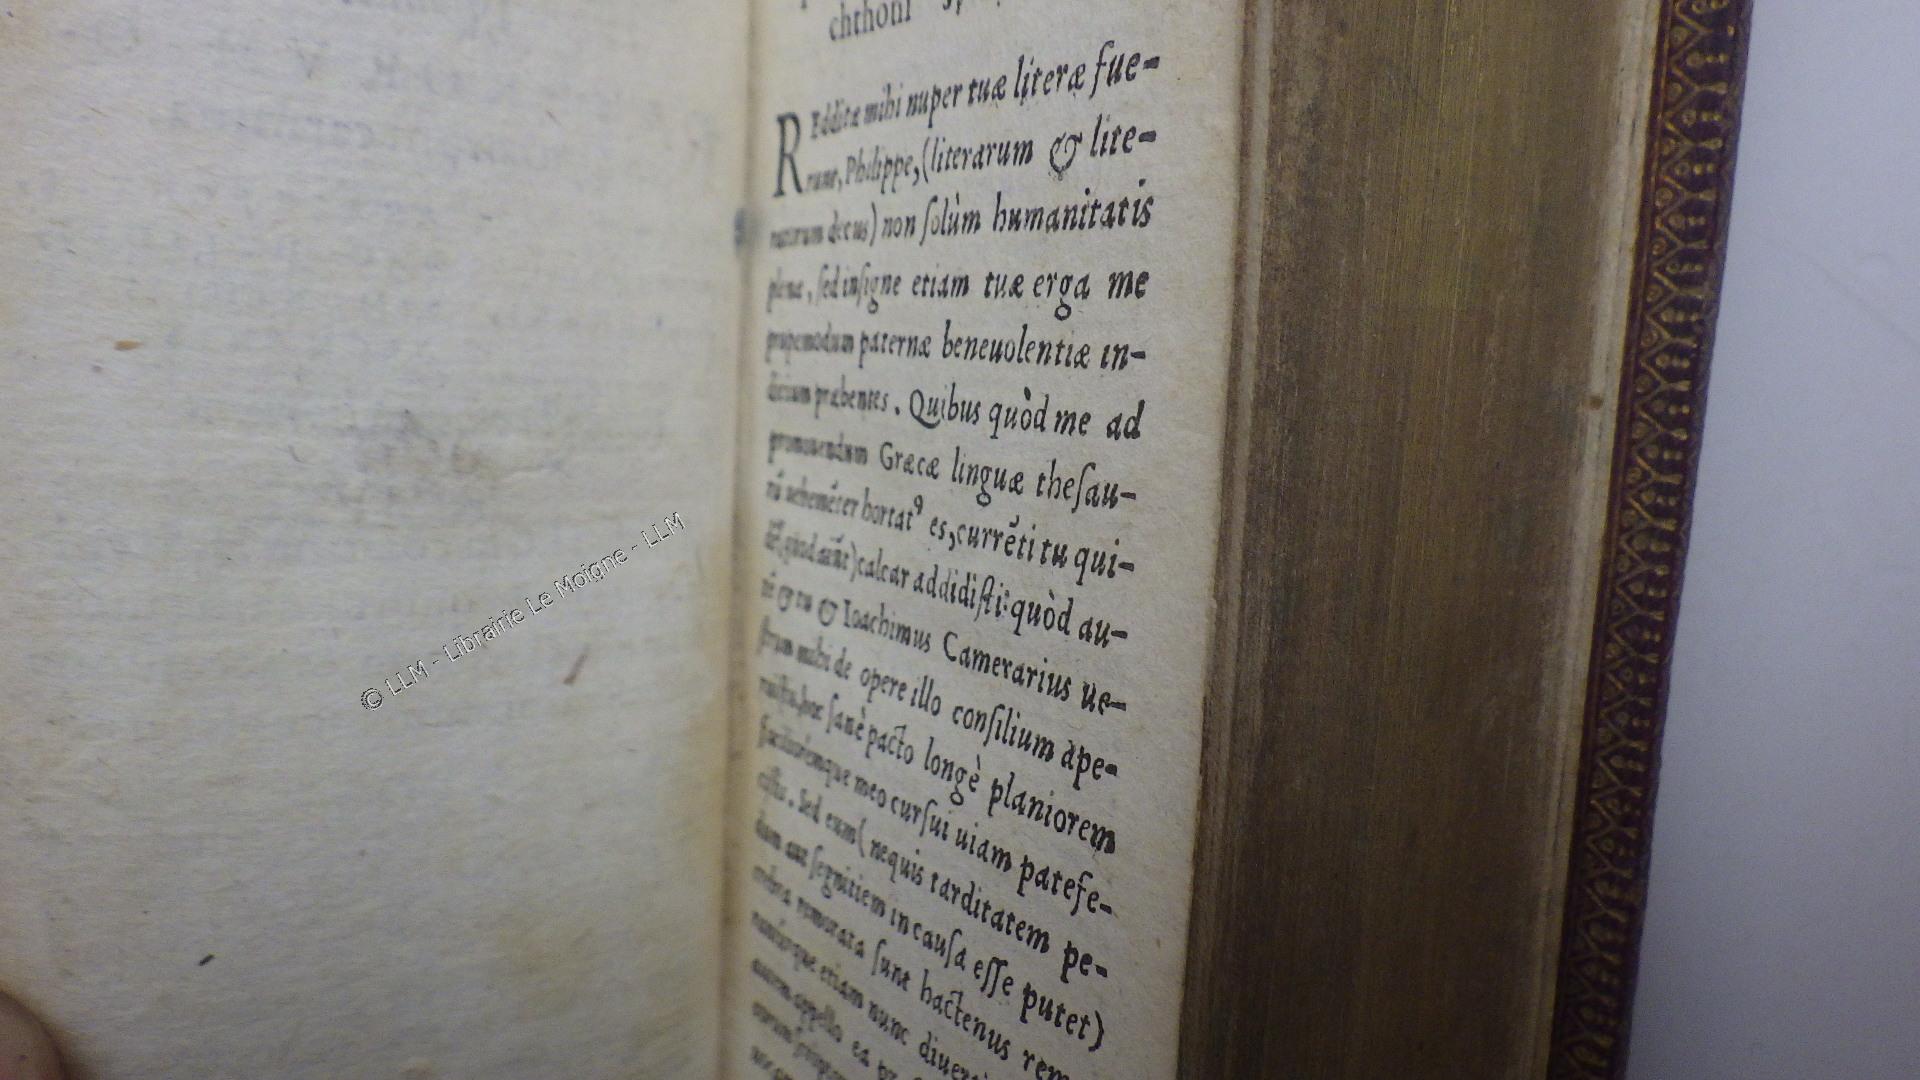 chthoni
REdditæ mihi nuper tuæ literæ fue-
runt, Philippe, (literarum & lite-
ratorum decus) non ſolùm humanitatis
plenæ, ſed inſigne etiam tuæ erga me
propemodum paternæ beneuolentiæ in-
dicium præbentes. Quibus quòd me ad
promouendum Græcæ linguæ theſau-
rū uehemēter hortatꝰ es, currēti tu qui-
dē (quod aiūt) calcar addidiſti: quòd au-
tē & tu & Ioachimus Camerarius ue-
ſtrum mihi de opere illo conſilium ape-
ruiſtis, hoc ſanè pacto longè planiorem
facilioremque meo curſui uiam patefe-
ciſtis. Sed eum (nequis tarditatem pe-
dum aut ſegnitiem in cauſa eſſe putet)
remorata ſunt hactenus rem
etiam nunc
autem appello ea
© LLM - Librairie Le Moigne - LLM